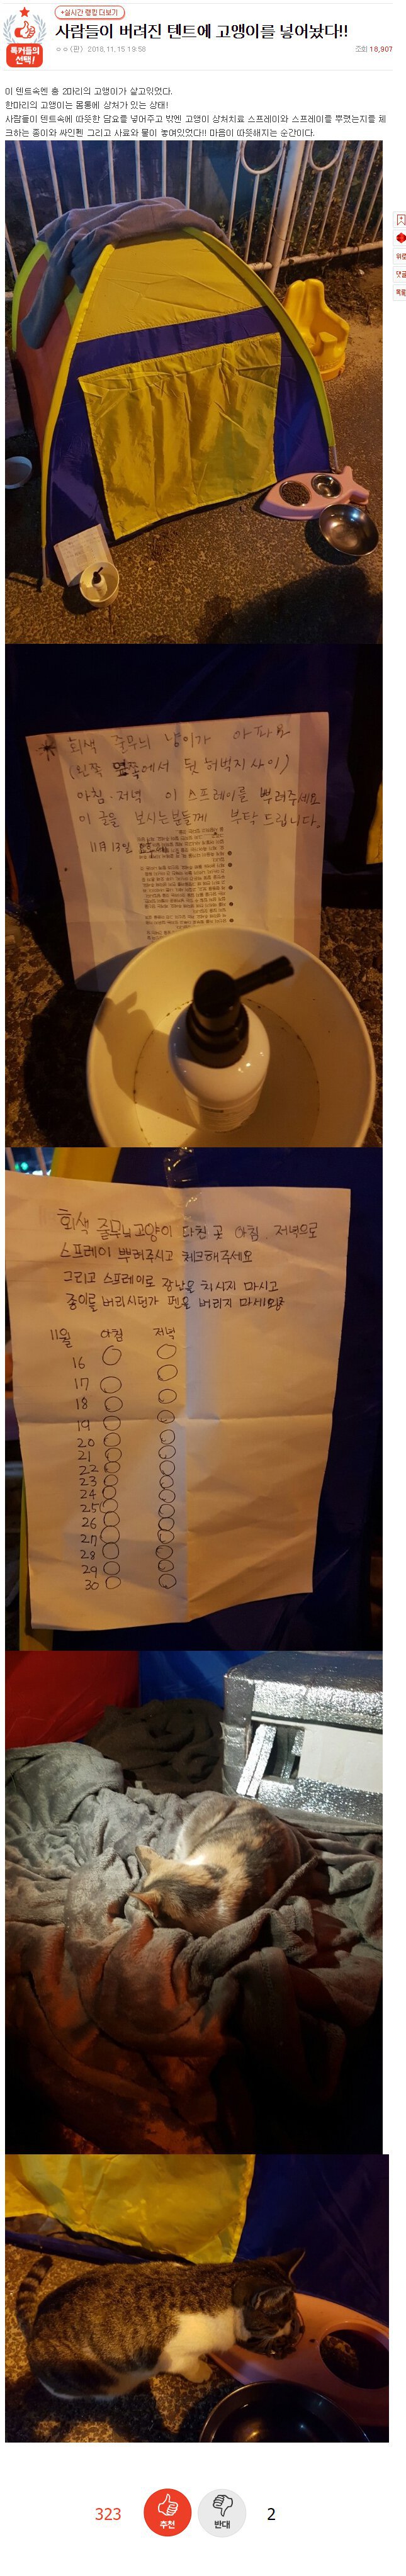 +실시간 랭킹 더보기
톡커들의
선택!
사람들이 버려진 텐트에 고앵이를 넣어놨다!!
ㅇㅇ (판) 2018.11.15 19:58
조회 18,907
이 텐트속엔 총 2마리의 고앵이가 살고있었다.
한마리의 고앵이는 몸통에 상처가 있는 상태!
사람들이 텐트속에 따뜻한 담요를 넣어주고 밖엔 고앵이 상처치료 스프레이와 스프레이를 뿌렸는지를 체
크하는 종이와 싸인펜 그리고 사료와 물이 놓여있었다!! 마음이 따뜻해지는 순간이다.
위로
댓글
목록
회색 줄무늬 냥이가 아파요
(왼쪽 옆쪽에서 뒷 허벅지 사이)
아침·저녁 이 스프레이를 뿌려주세요
이 글을 보시는분들께 부탁 드립니다.
11월 13일
회색 줄무늬고양이 다친 곳 아침 저녁으로
스프레이 뿌려주시고 체크해주세요
그리고 스프레이로 장난을 치시지 마시고
종이를 버리시던가 펜을 버리지 마세요
11월 아침 저녁
16
17
18
19
20
21
22
23
24
25
26
27
28
29
30
323 추천 반대 2